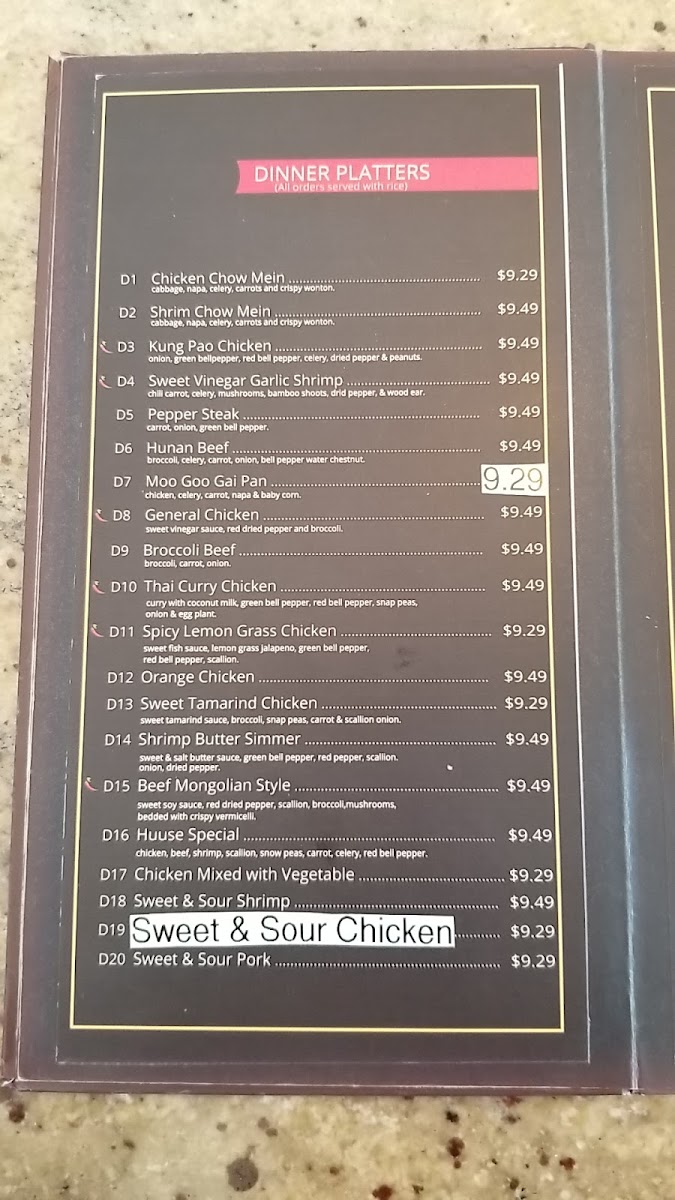 DINNER PLATTERS
(All orders served with rice)
D1 Chicken Chow Mein $9.29
cabbage, napa, celery, carrots and crispy wonton.
D2 Shrim Chow Mein $9.49
cabbage, napa, celery, carrots and crispy wonton.
D3 Kung Pao Chicken $9.49
onion, green bellpepper, red bell pepper, celery, dried pepper & peanuts.
D4 Sweet Vinegar Garlic Shrimp $9.49
chili carrot, celery, mushrooms, bamboo shoots, drid pepper, & wood ear.
D5 Pepper Steak $9.49
carrot, onion, green bell pepper.
D6 Hunan Beef $9.49
broccoli, celery, carrot, onion, bell pepper water chestnut.
D7 Moo Goo Gai Pan 9.29
chicken, celery, carrot, napa & baby corn.
D8 General Chicken $9.49
sweet vinegar sauce, red dried pepper and broccoli.
D9 Broccoli Beef $9.49
broccoli, carrot, onion.
D10 Thai Curry Chicken $9.49
curry with coconut milk, green bell pepper, red bell pepper, snap peas,
onion & egg plant.
D11 Spicy Lemon Grass Chicken $9.29
sweet fish sauce, lemon grass jalapeno, green bell pepper,
red bell pepper, scallion.
D12 Orange Chicken $9.49
D13 Sweet Tamarind Chicken $9.29
sweet tamarind sauce, broccoli, snap peas, carrot & scallion onion.
D14 Shrimp Butter Simmer $9.49
sweet & salt butter sauce, green bell pepper, red pepper, scallion.
onion, dried pepper.
D15 Beef Mongolian Style $9.49
sweet soy sauce, red dried pepper, scallion, broccoli,mushrooms,
bedded with crispy vermicelli.
D16 Huuse Special $9.49
chicken, beef, shrimp, scallion, snow peas, carrot, celery, red bell pepper.
D17 Chicken Mixed with Vegetable $9.29
D18 Sweet & Sour Shrimp $9.49
D19 Sweet & Sour Chicken $9.29
D20 Sweet & Sour Pork $9.29